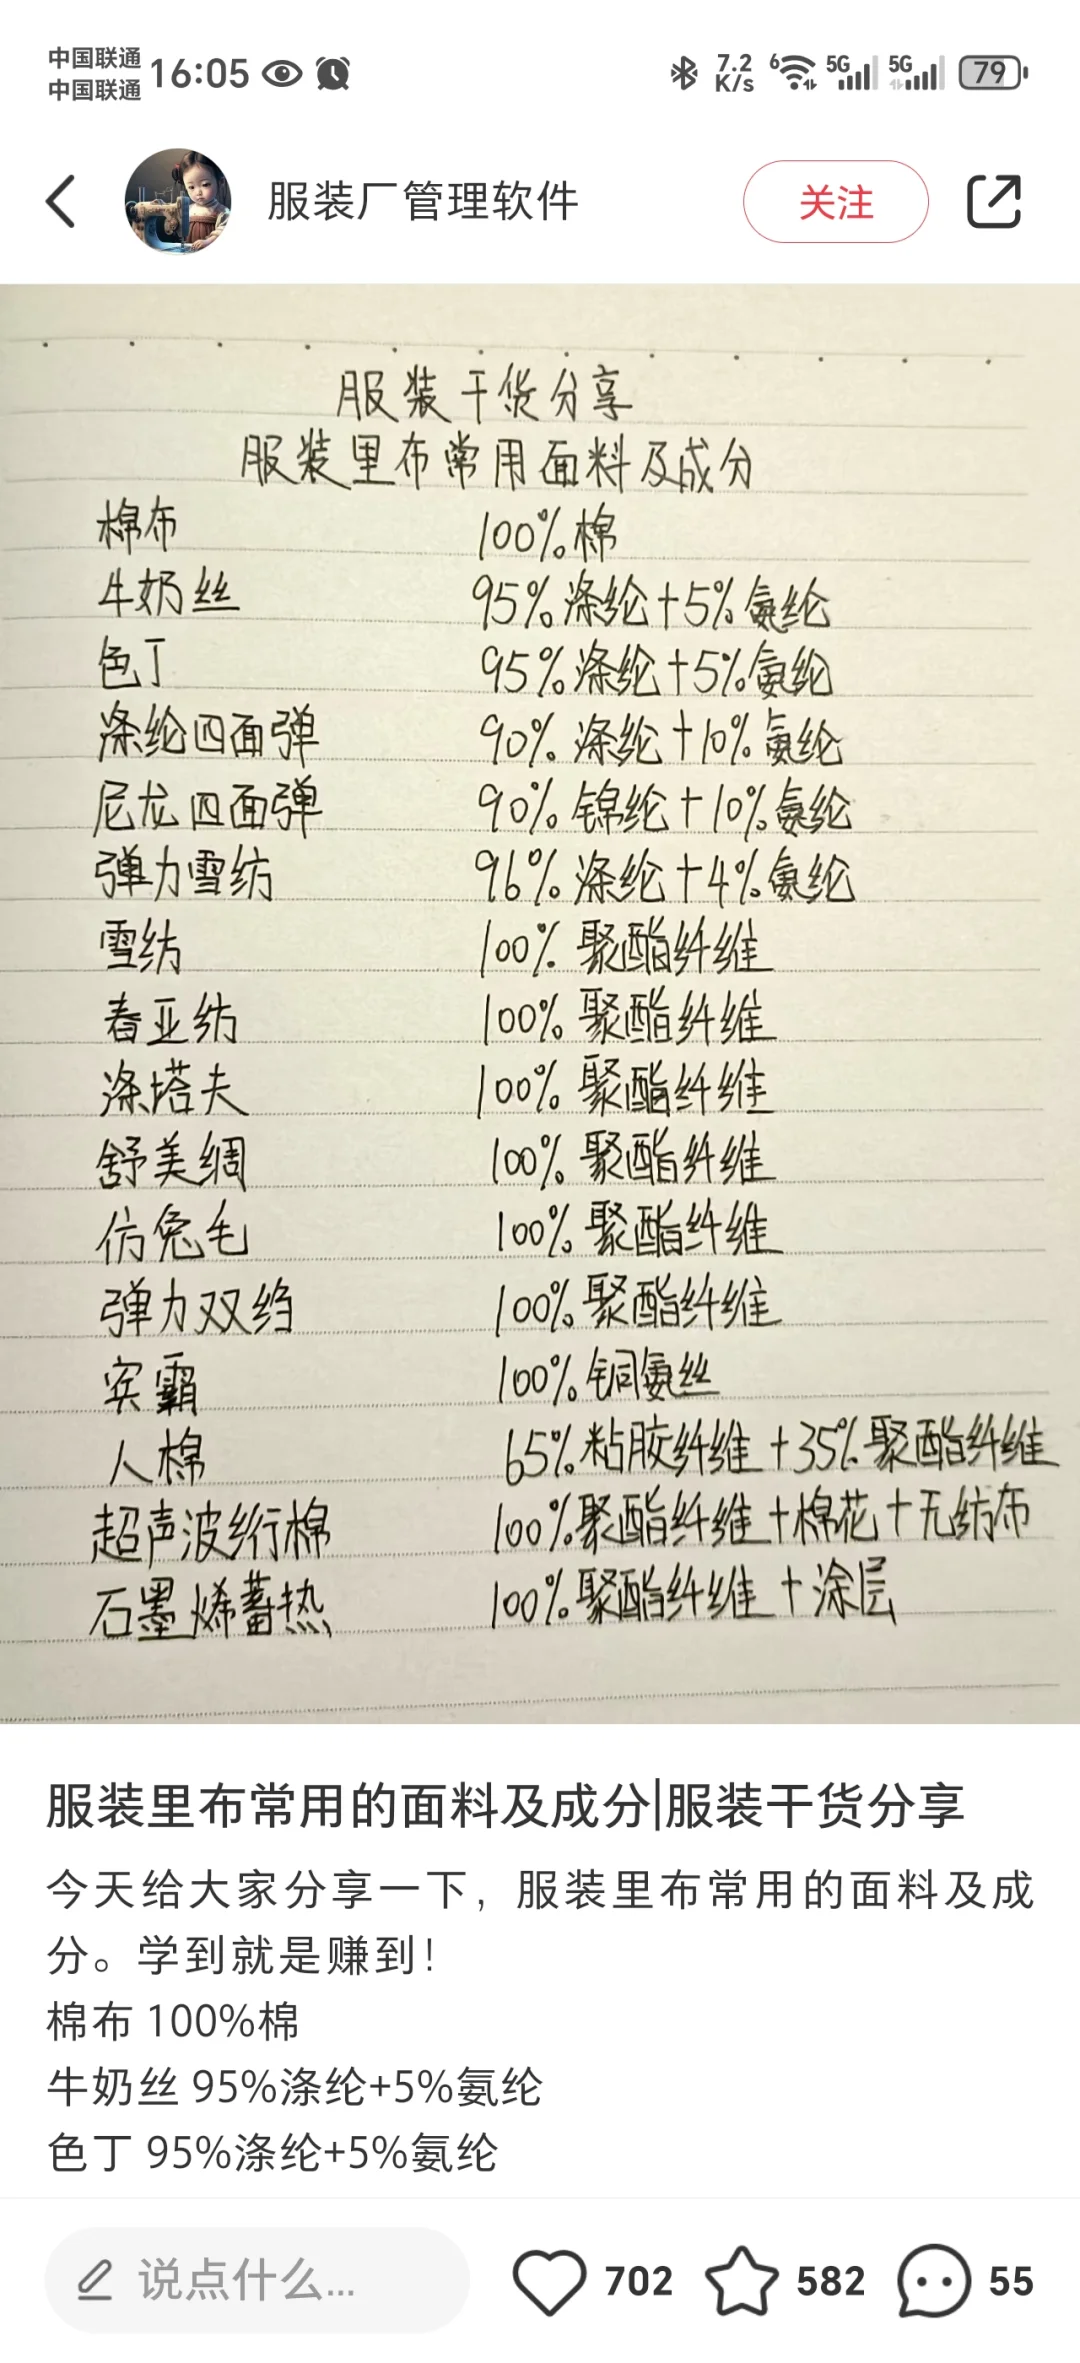 中国联通
中国联通
16:05
7.2
K/s
6
5G
5G
79
服装厂管理软件
关注
服装干货分享
服装里布常用面料及成分
棉布 100%棉
牛奶丝 95%涤纶+5%氨纶
色丁 95%涤纶+5%氨纶
涤纶四面弹 90%涤纶+10%氨纶
尼龙四面弹 90%锦纶+10%氨纶
弹力雪纺 96%涤纶+4%氨纶
雪纺 100%聚酯纤维
春亚纺 100%聚酯纤维
涤塔夫 100%聚酯纤维
舒美绸 100%聚酯纤维
仿兔毛 100%聚酯纤维
弹力双绉 100%聚酯纤维
宾霸 100%铜氨丝
人棉 65%粘胶纤维+35%聚酯纤维
超声波绗棉 100%聚酯纤维+棉花+无纺布
石墨烯蓄热 100%聚酯纤维+涂层
服装里布常用的面料及成分|服装干货分享
今天给大家分享一下，服装里布常用的面料及成
分。学到就是赚到！
棉布 100%棉
牛奶丝 95%涤纶+5%氨纶
色丁 95%涤纶+5%氨纶
说点什么...
702
582
55